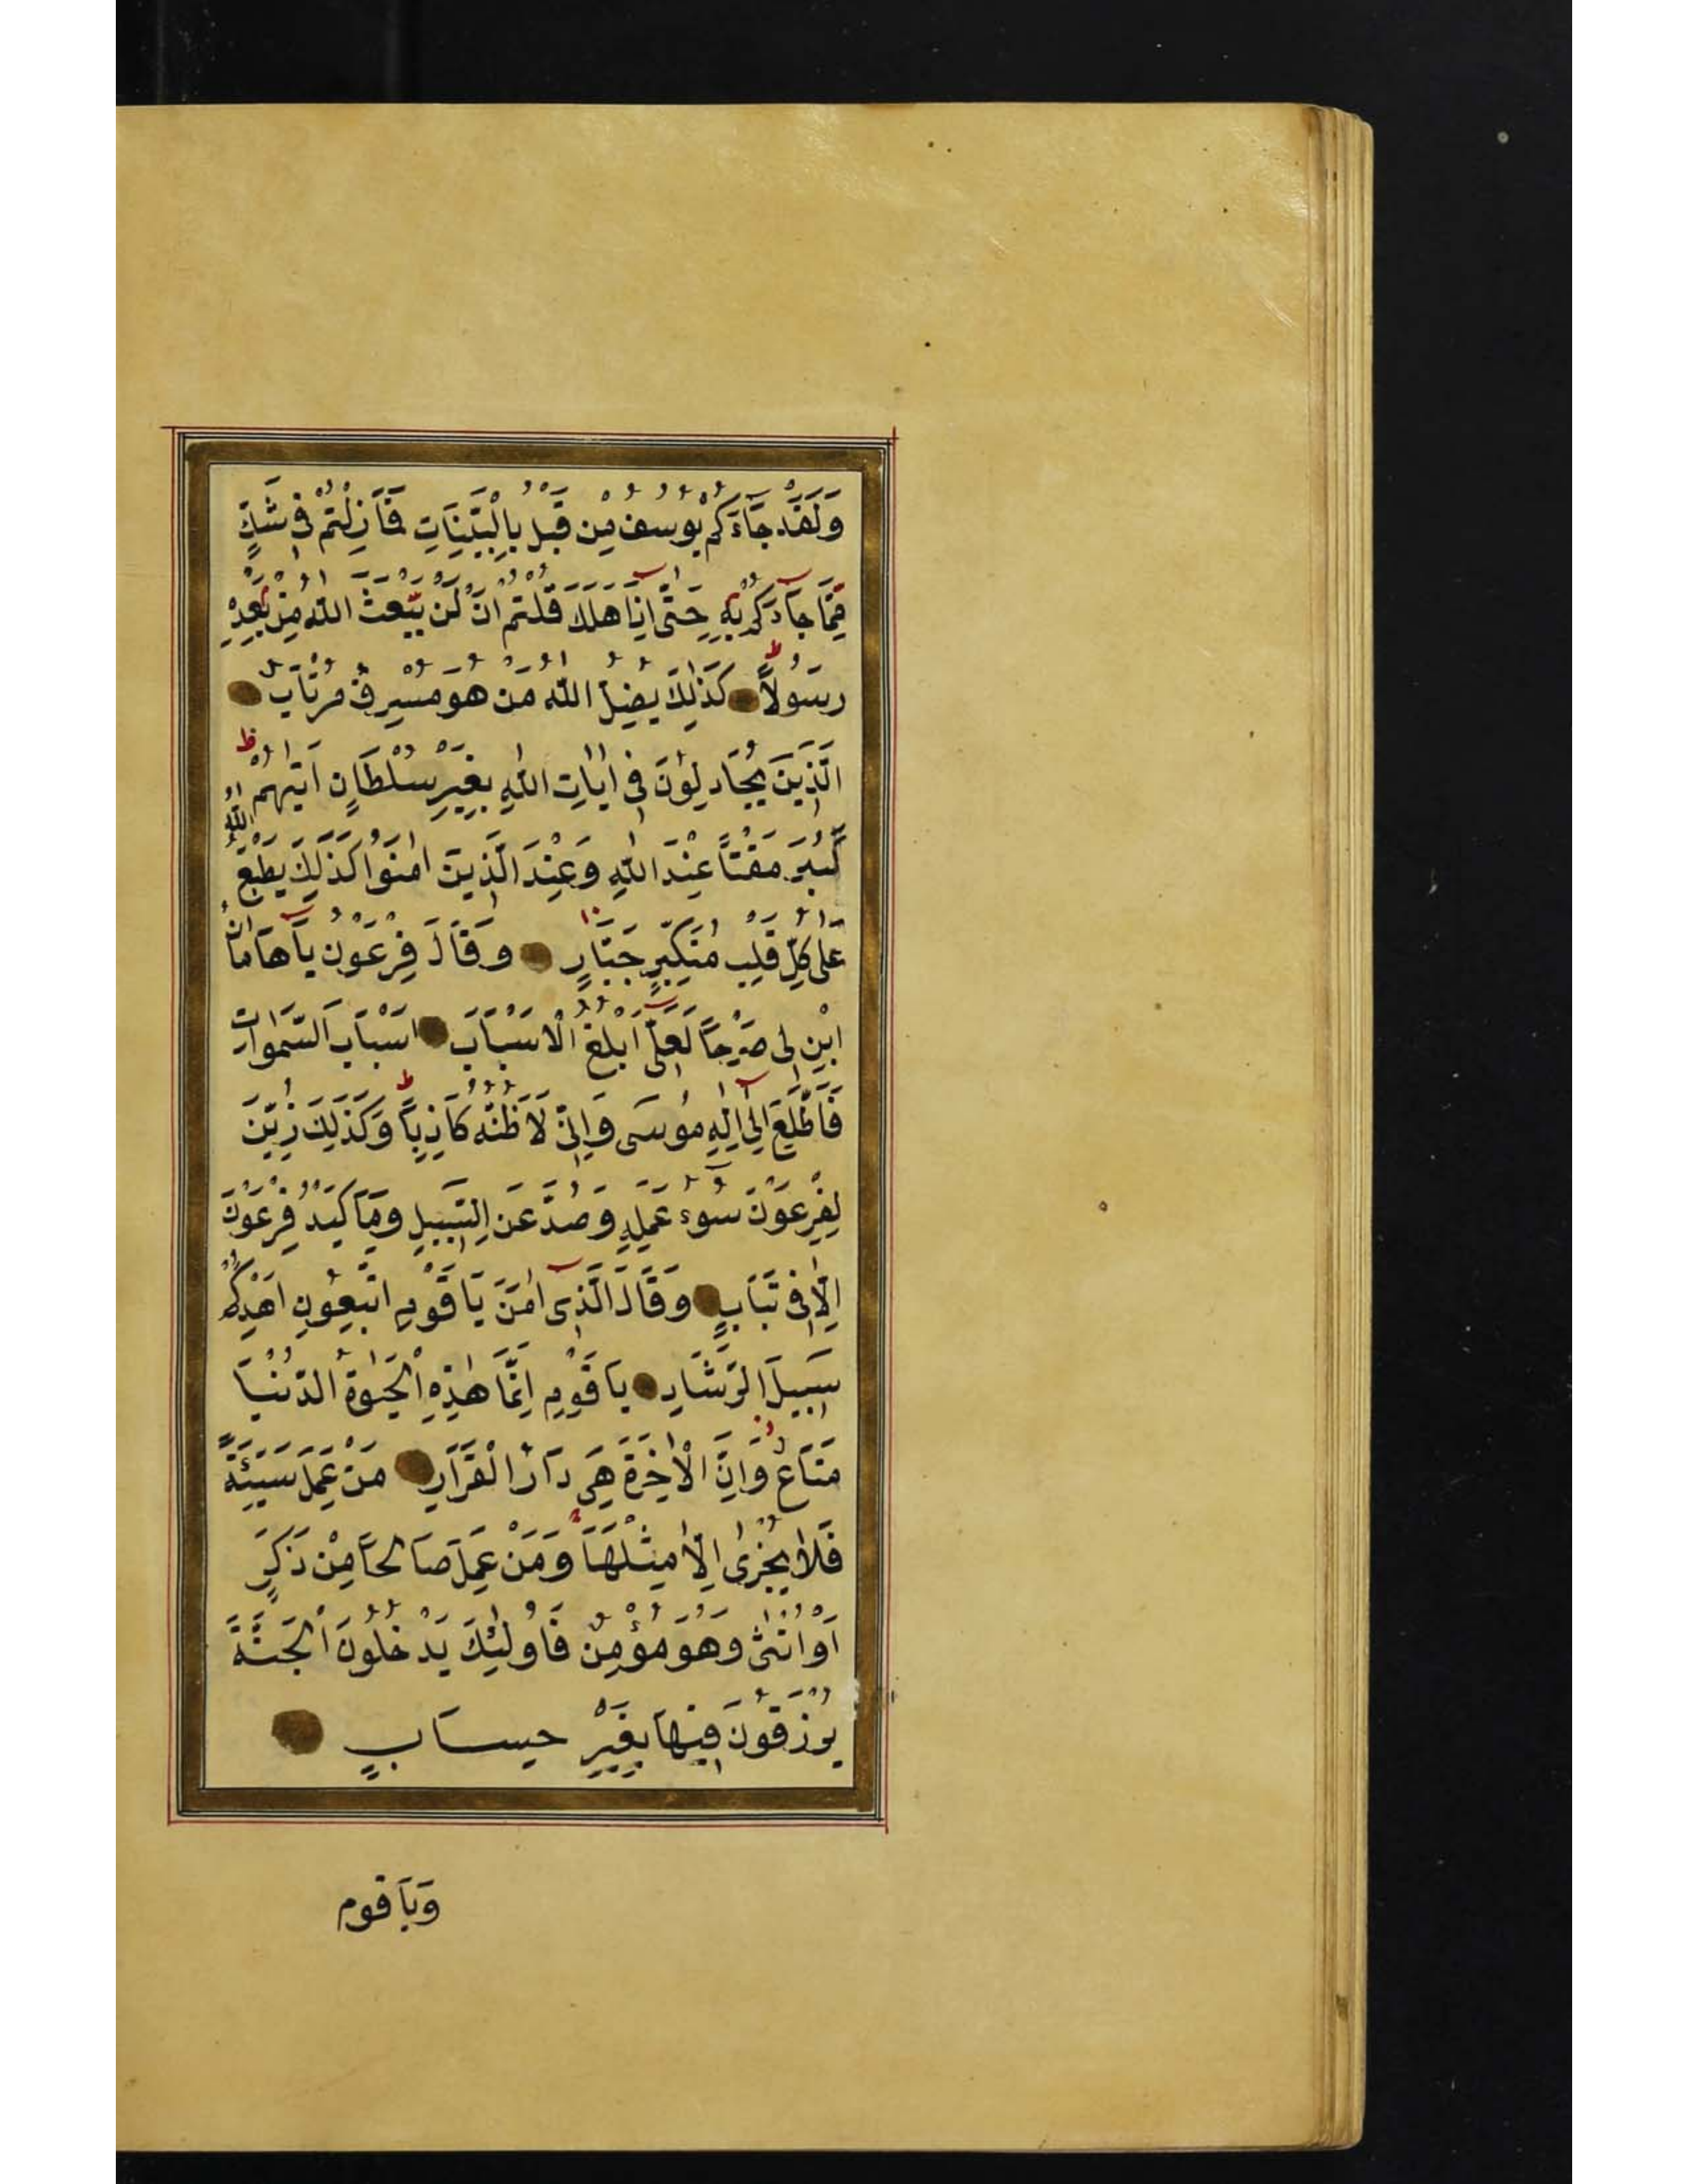 وَلَقَدْ جَآءَكُمْ يُوسُفُ مِنْ قَبْلُ بِالْبَيِّنَاتِ فَمَا زِلْتُمْ فِى شَكٍّ
مِمَّا جَآءَكُمْ بِهِ حَتّٰى اِذَا هَلَكَ قُلْتُمْ اَنْ لَنْ يَبْعَثَ اللّٰهُ مِنْ بَعْدِهِ
رَسُولاً كَذٰلِكَ يُضِلُّ اللّٰهُ مَنْ هُوَ مُسْرِفٌ مُرْتَابٌ
الَّذِينَ يُجَادِلُونَ فِى اٰيَاتِ اللّٰهِ بِغَيْرِ سُلْطَانٍ اَتٰيهُمْ
كَبُرَ مَقْتاً عِنْدَ اللّٰهِ وَعِنْدَ الَّذِينَ اٰمَنُوا كَذٰلِكَ يَطْبَعُ اللّٰهُ
عَلٰى كُلِّ قَلْبِ مُتَكَبِّرٍ جَبَّارٍ وَقَالَ فِرْعَوْنُ يَا هَامَانُ
ابْنِ لِى صَرْحاً لَعَلّٰى اَبْلُغُ الْاَسْبَابَ اَسْبَابَ السَّمٰوَاتِ
فَاَطَّلِعَ اِلٰى اِلٰهِ مُوسٰى وَاِنّٖى لَاَظُنُّهُ كَاذِباً وَكَذٰلِكَ زُيِّنَ
لِفِرْعَوْنَ سُوءُ عَمَلِهِ وَصُدَّ عَنِ السَّبِيلِ وَمَا كَيْدُ فِرْعَوْنَ
اِلَّا فِى تَبَابٍ وَقَالَ الَّذِى اٰمَنَ يَا قَوْمِ اتَّبِعُونِ اَهْدِكُمْ
سَبِيلَ الرَّشَادِ يَا قَوْمِ اِنَّمَا هٰذِهِ الْحَيٰوةُ الدُّنْيَا
مَتَاعٌ وَاِنَّ الْاٰخِرَةَ هِىَ دَارُ الْقَرَارِ مَنْ عَمِلَ سَيِّئَةً
فَلَا يُجْزٰى اِلَّا مِثْلَهَا وَمَنْ عَمِلَ صَالِحاً مِنْ ذَكَرٍ
اَوْ اُنْثٰى وَهُوَ مُؤْمِنٌ فَاُولٰئِكَ يَدْخُلُونَ الْجَنَّةَ
يُرْزَقُونَ فِيهَا بِغَيْرِ حِسَابٍ
وَيَا قوم